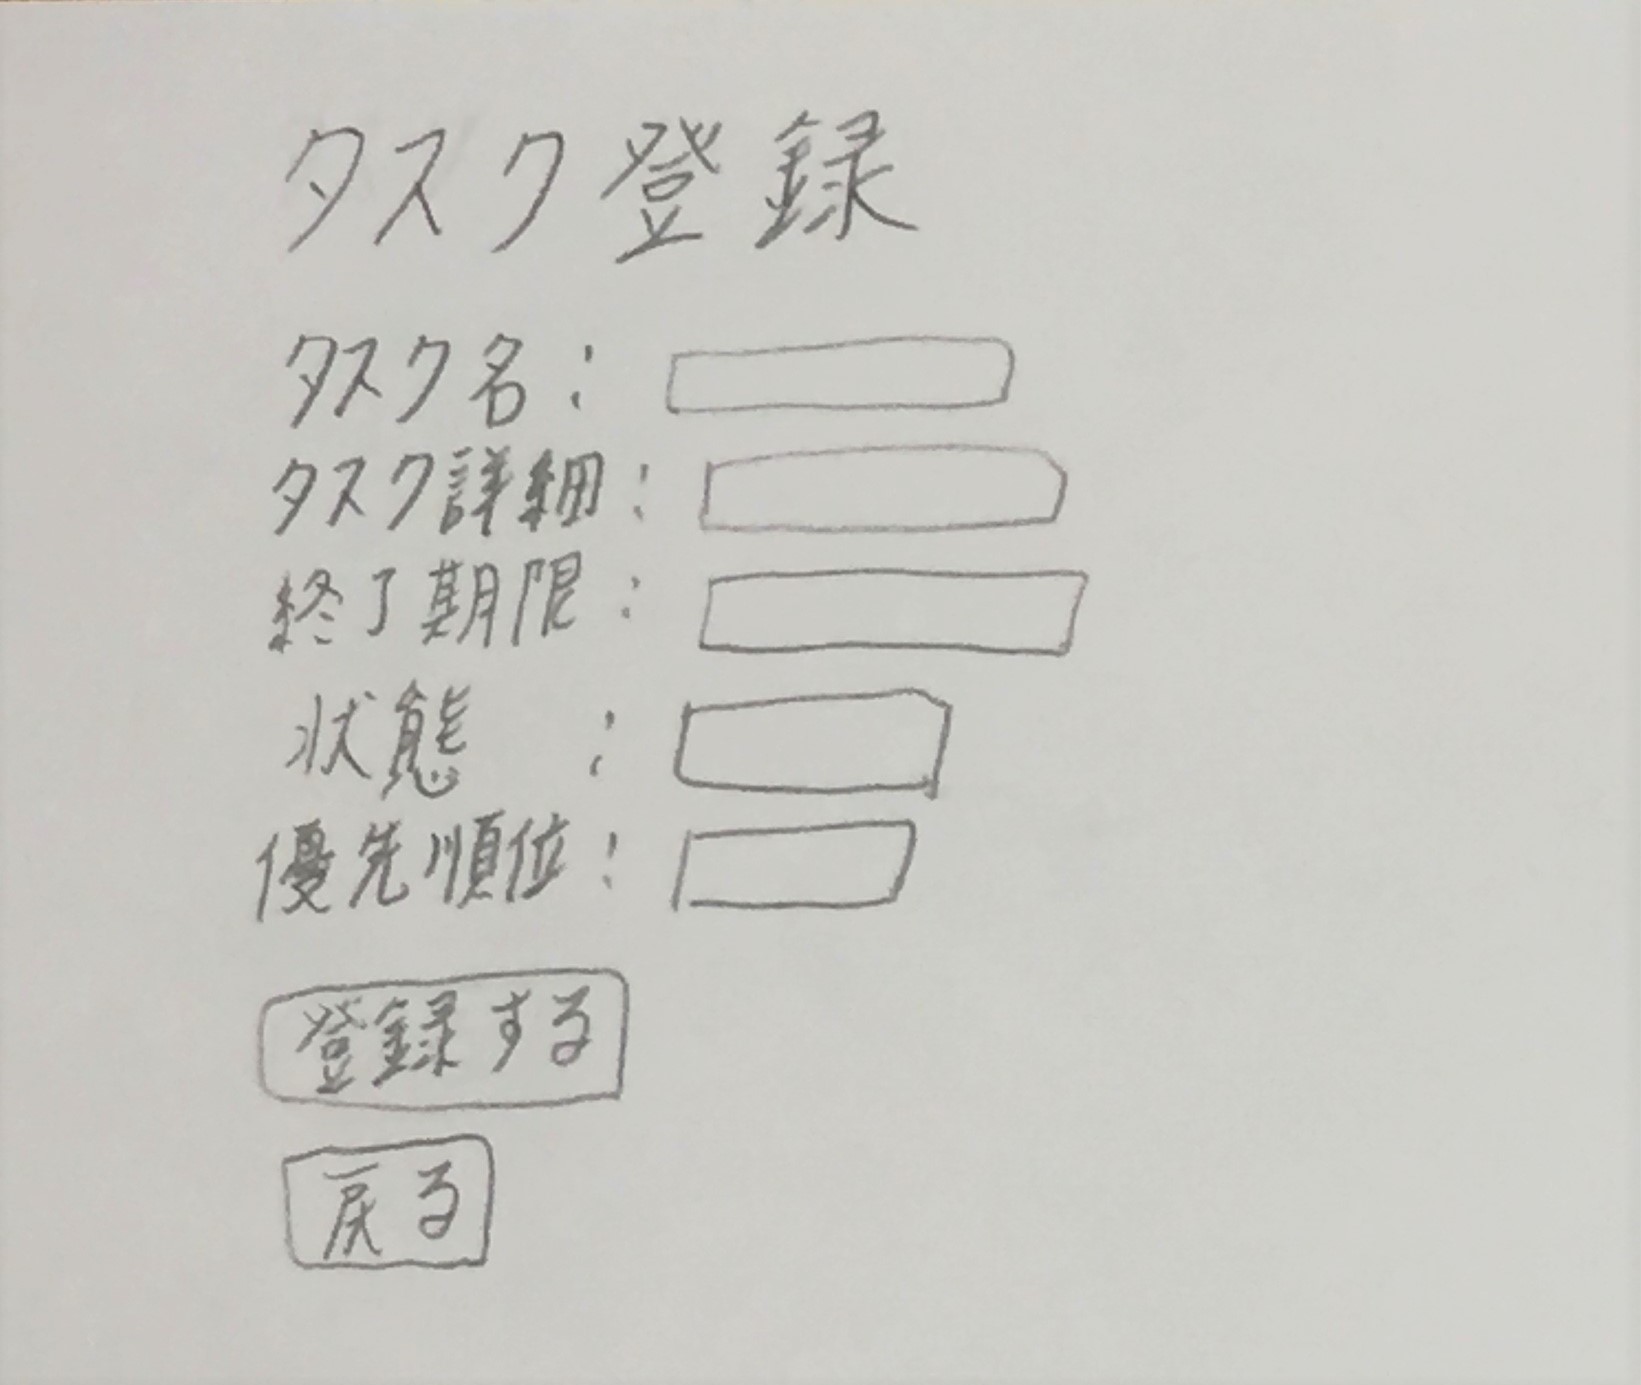 タスク登録
タスク名:
タスク詳細:
終了期限:
状態:
優先順位:
登録する
戻る